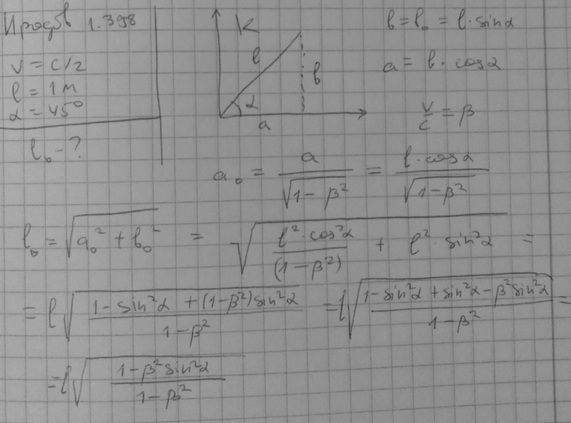 Иродов 1.398
V = c/2
l = 1 м
α = 45°
l₀ - ?
K
l
b
α
a
b = b₀ = l · sinα
a = l · cosα
V/c = β
a₀ = a/√(1-β²) = l · cosα/√(1-β²)
l₀ = √(a₀² + b₀²) = √(l² · cos²α/(1-β²) + l² · sin²α) =
= l√((1-sin²α + (1-β²)sin²α)/(1-β²)) = l√((1-sin²α + sin²α - β²sin²α)/(1-β²)) =
= l√((1-β²sin²α)/(1-β²))